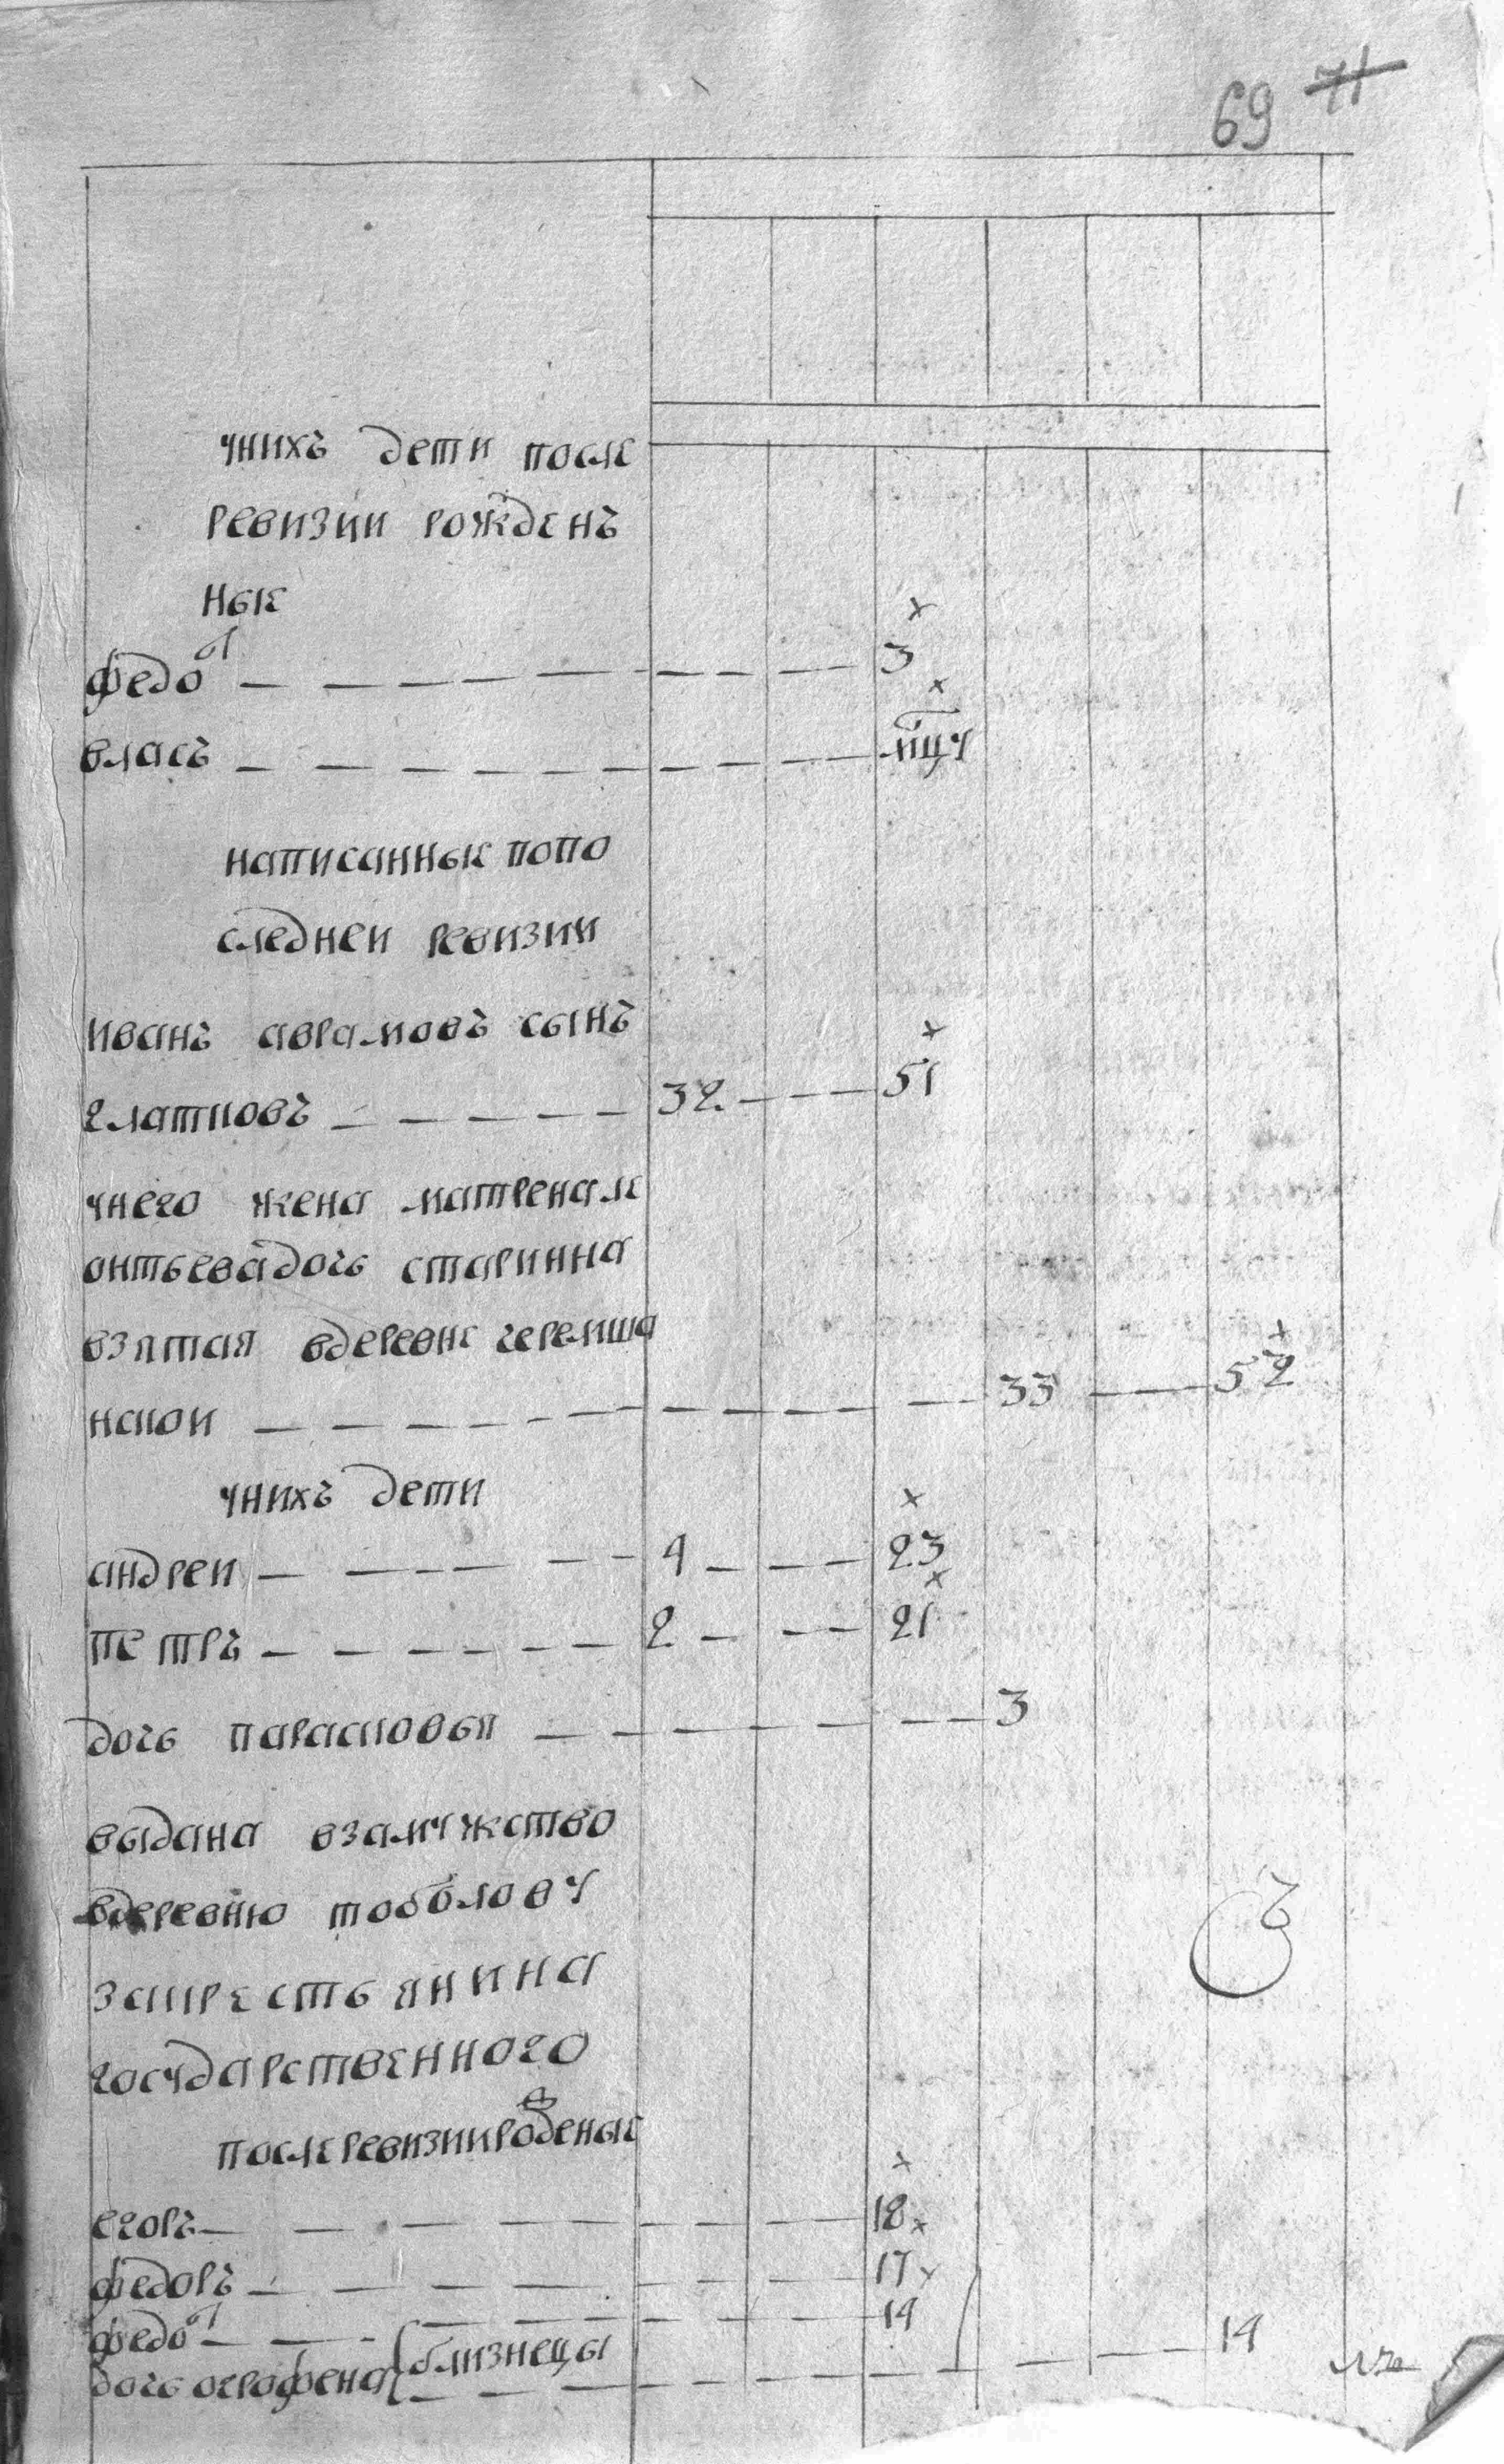 69 71
унихъ дети после
ревизии рожденъ
ные
федот — 3
власъ — мцу
написанные попо
следнеи ревизии
иванъ аврамовъ сынъ
глатковъ — 32 — 51
унего жена матрена ле
онтьева дочь старинна
взятая вдеревне черемша
нскои — 33 — 52
унихъ дети
андреи — 4 — 23
петръ — 2 — 21
дочь парасковья — 3
выдана взамужство
вдеревню тоболову
закрестьянина
государственного
послеревизиирожденые
егоръ — 18
федоръ — 17
федот — 14
близнецы
дочь ографена — 14